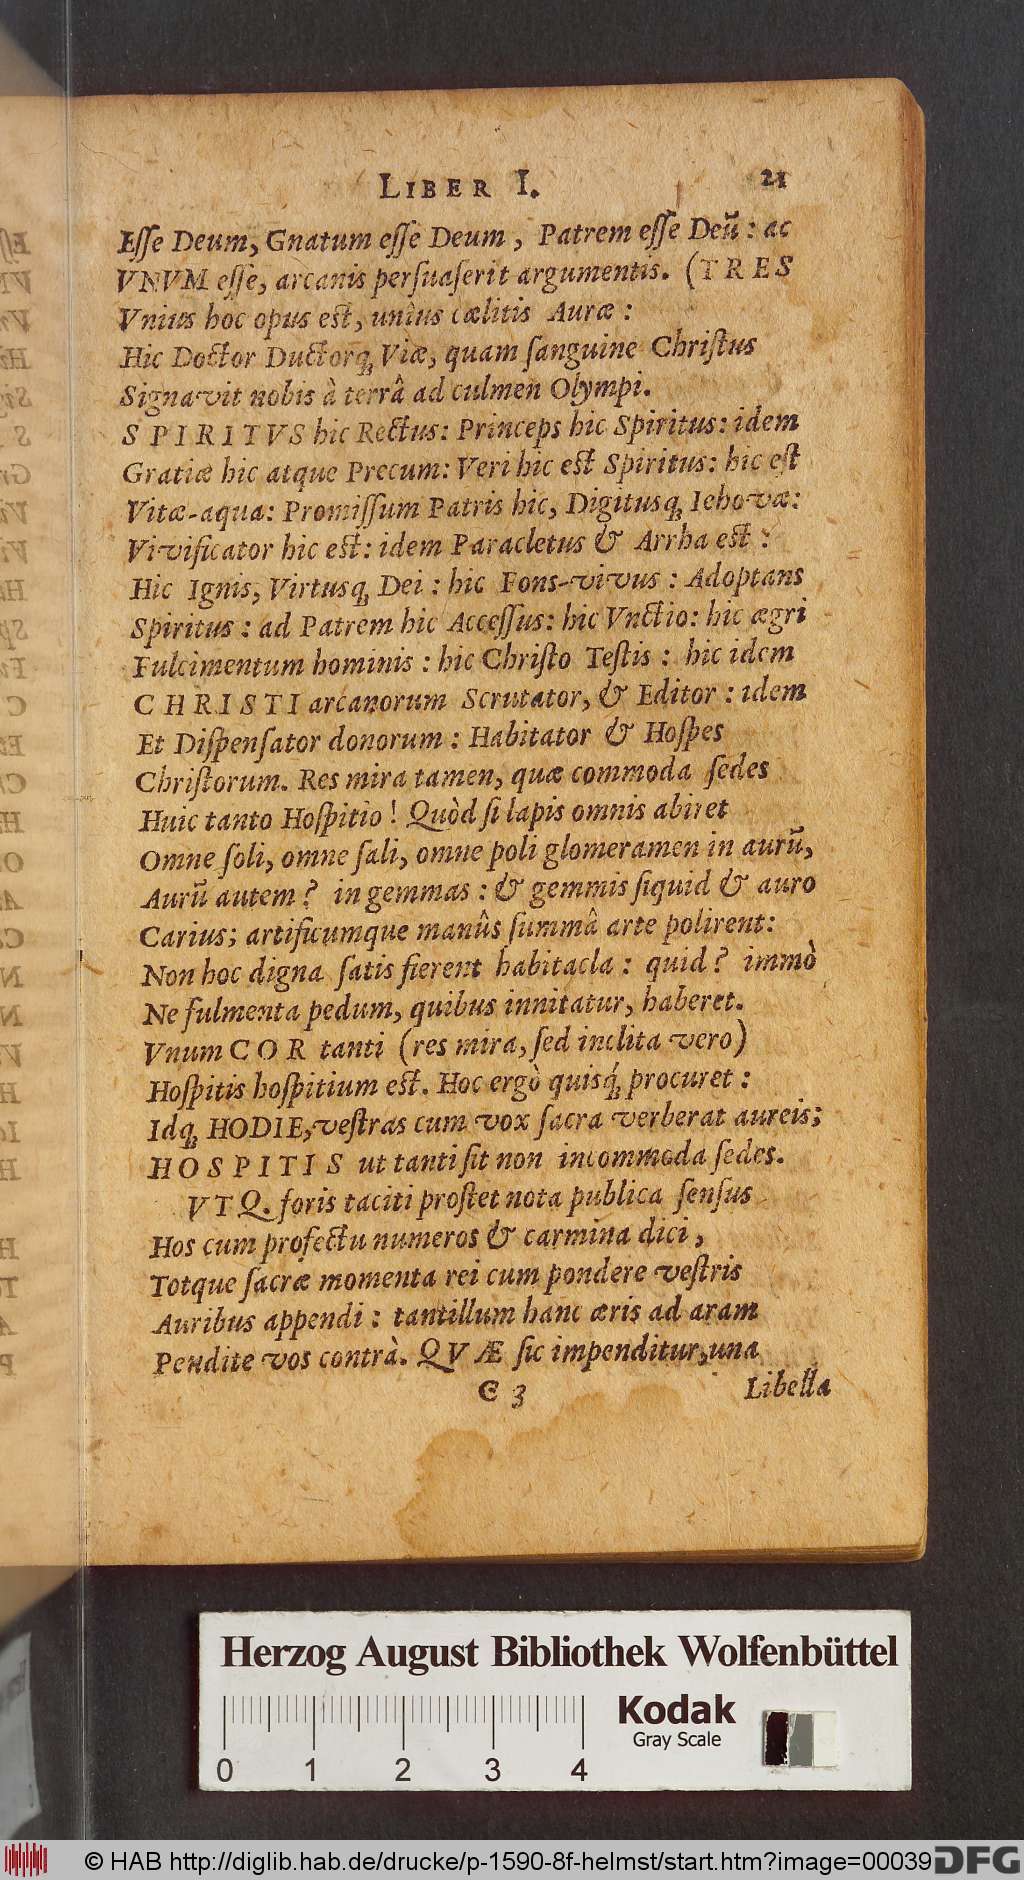 LIBER I. 21
Eſſe Deum, Gnatum eſſe Deum, Patrem eſſe Deū: ac
VNVM eſſe, arcanis perſuaſerit argumentis. (TRES
Vnius hoc opus est, unîus cælitis Auræ:
Hic Doctor Ductorq́ Viæ, quam ſanguine Chriſtus
Signavit nobis à terrâ ad culmen Olympi.
SPIRITVS hic Rectus: Princeps hic Spiritus: idem
Gratiæ hic atque Precum: Veri hic est Spiritus: hic eſt
Vitæ-aqua: Promiſſum Patris hic, Digitusq; Iehovæ:
Vivificator hic est: idem Paracletus & Arrha est:
Hic Ignis, Virtusq; Dei: hic Fons-vivus: Adoptans
Spiritus: ad Patrem hic Acceſſus: hic Vnctio: hic ægri
Fulcimentum hominis: hic Chriſto Teſtis: hic idem
CHRISTI arcanorum Scrutator, & Editor: idem
Et Diſpenſator donorum: Habitator & Hoſpes
Chriſtorum. Res mira tamen, quæ commoda ſedes
Huic tanto Hoſpitio! Quòd ſi lapis omnis abiret
Omne ſoli, omne ſali, omne poli glomeramen in aurū,
Aurū autem? in gemmas: & gemmis ſiquid & auro
Carius; artificumque manûs ſummâ arte polirent:
Non hoc digna ſatis fierent habitacla: quid? immò
Ne fulmenta pedum, quibus innitatur, haberet.
Vnum COR tanti (res mira, ſed inclita vero)
Hoſpitis hoſpitium est. Hoc ergò quisq́; procuret:
Idq; HODIE, veſtras cum vox ſacra verberat aureis;
HOSPITIS ut tanti ſit non incommoda ſedes.
VTQ. foris taciti proſtet nota publica ſenſus
Hos cum profectu numeros & carmina dici,
Totque ſacræ momenta rei cum pondere veſtris
Auribus appendi: tantillum hanc æris ad aram
Pendite vos contrà. QVÆ ſic impenditur, una
C 3 Libella
Herzog August Bibliothek Wolfenbüttel
Kodak
Gray Scale
0 1 2 3 4
© HAB http://diglib.hab.de/drucke/p-1590-8f-helmst/start.htm?image=00039 DFG